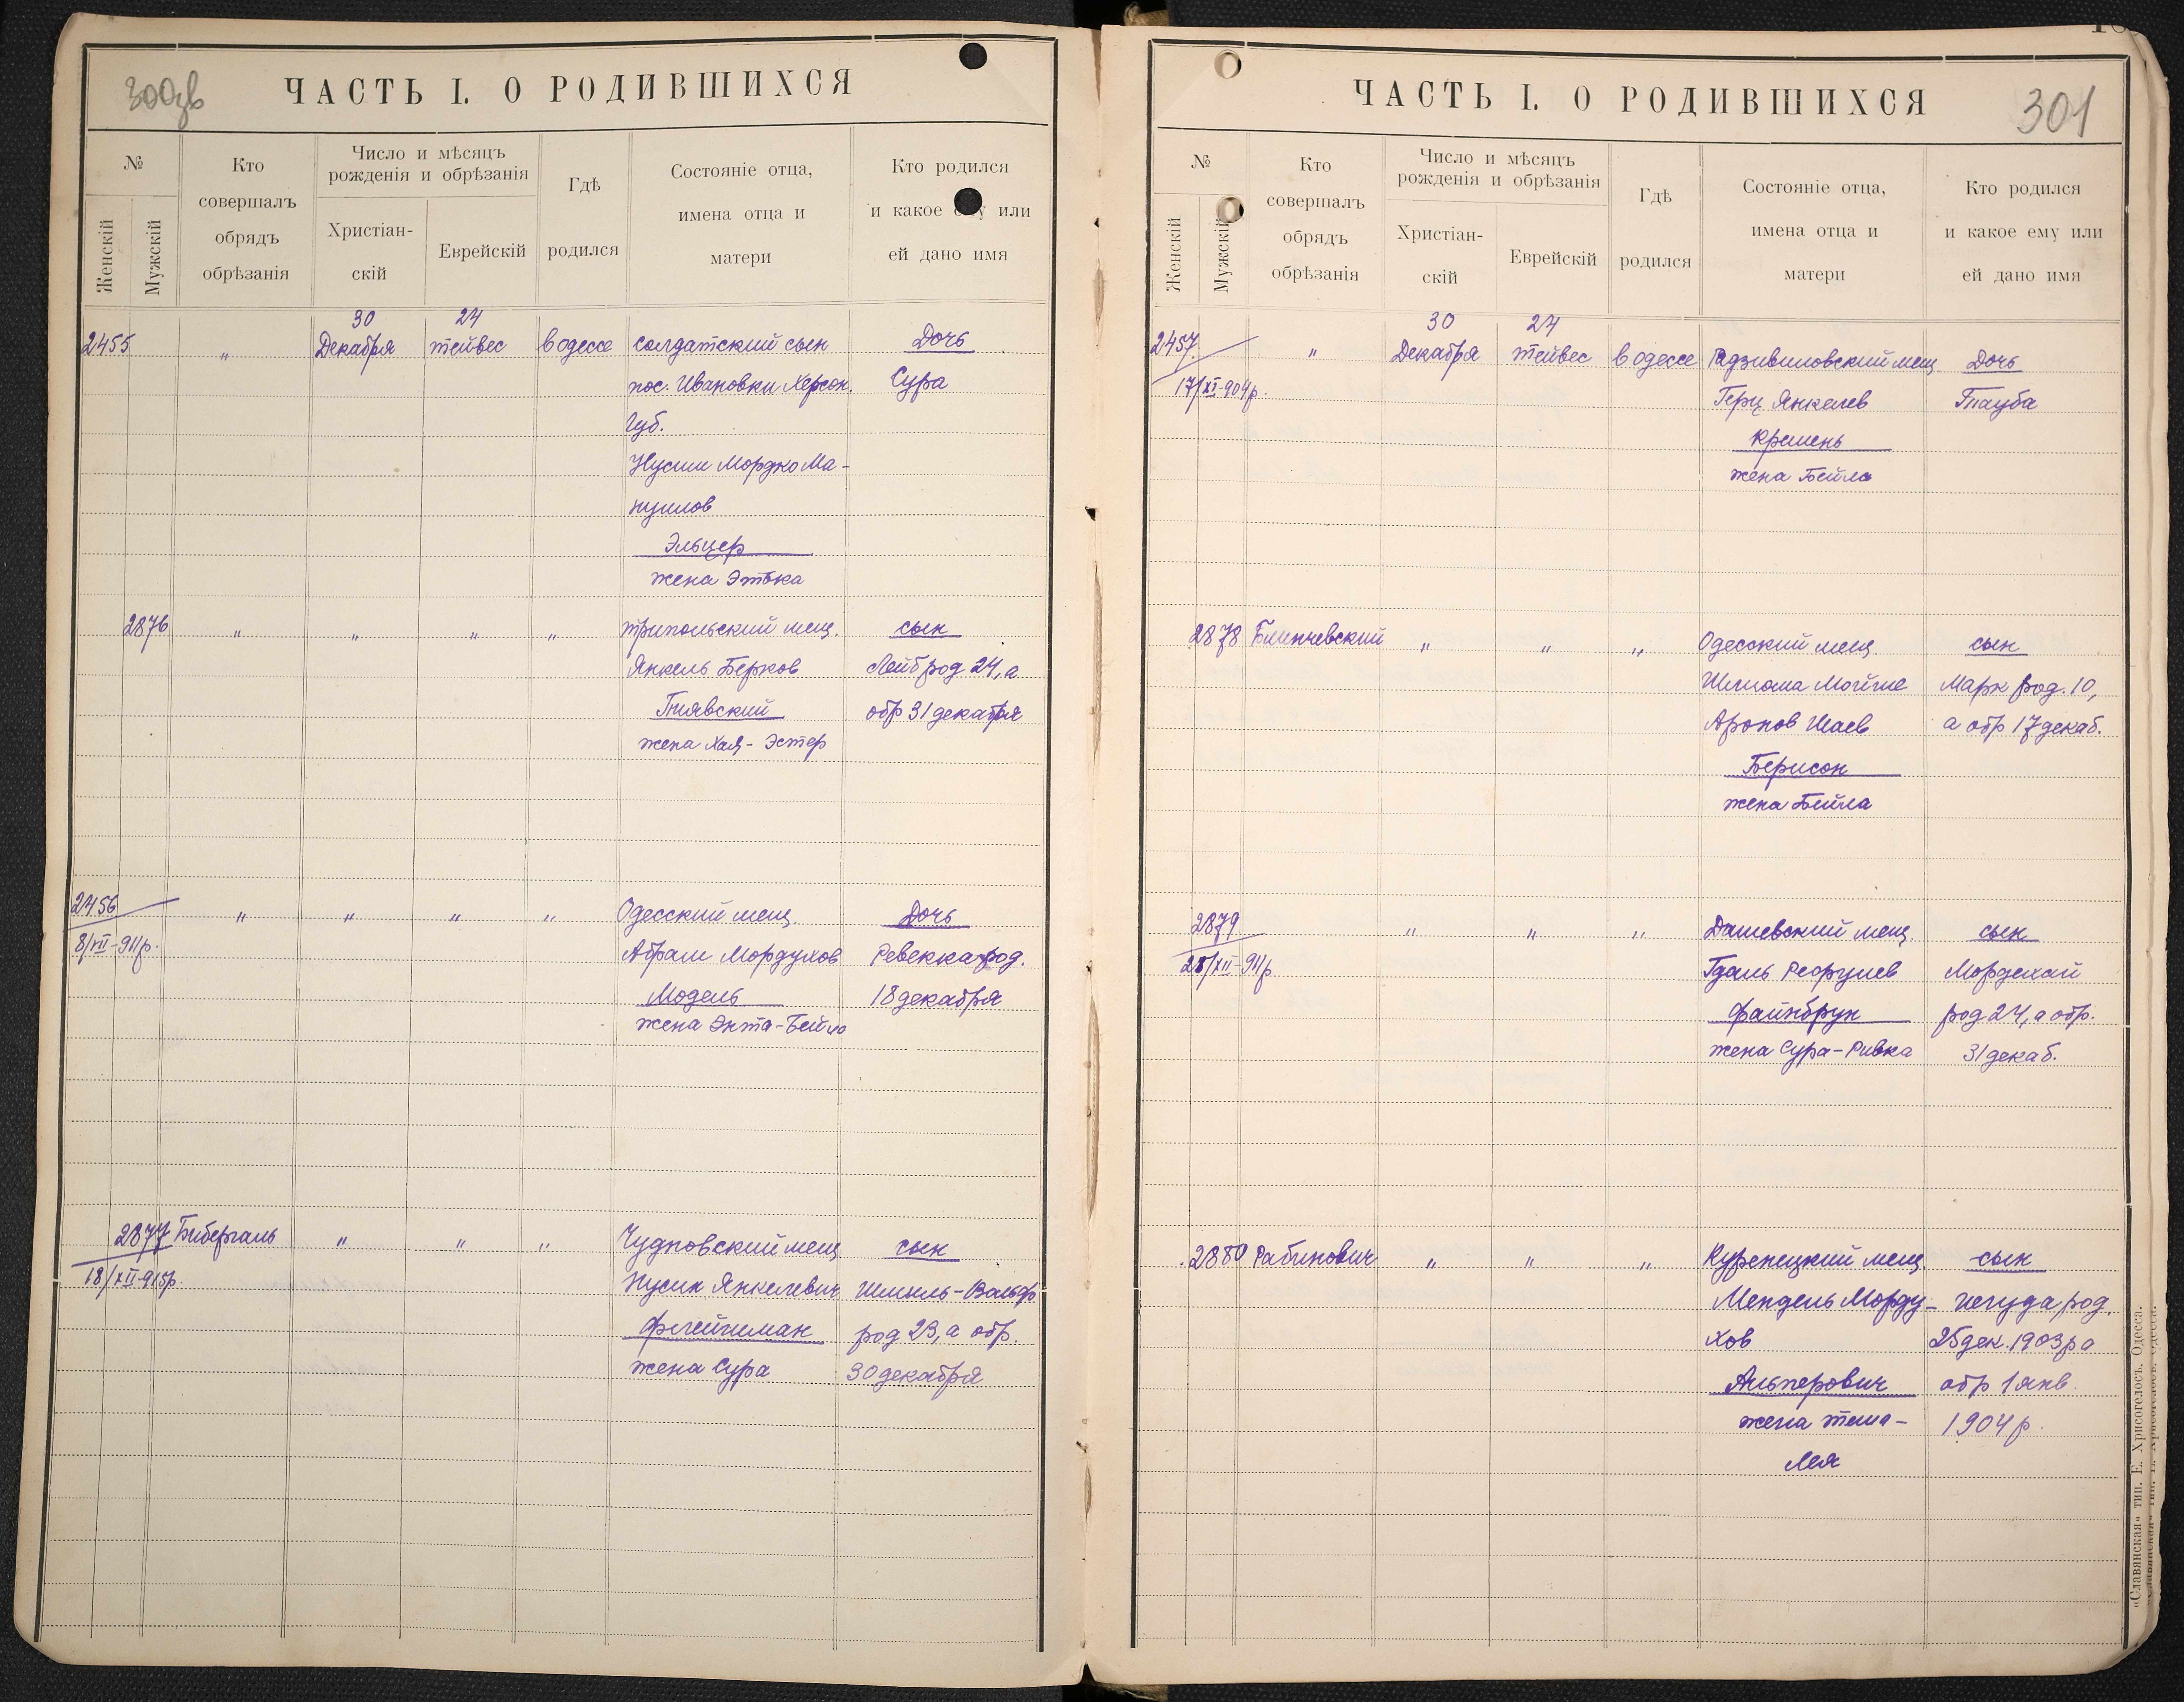 300зв
ЧАСТЬ I. О РОДИВШИХСЯ
№
Женскій
Мужскій
Кто
совершалъ
обрядъ
обрѣзанія
Число и мѣсяцъ
рожденія и обрѣзанія
Христіан-
скій
Еврейскій
Гдѣ
родился
Состояніе отца,
имена отца и
матери
Кто родился
и какое ему или
ей дано имя
30 24
2455 " Декабря тейвес в одессе солдатский сын Дочь
пос. Ивановки Херсон. Сура
Губ.
Нусим Мордко Ма-
нуилов
Эльцер
жена Этька
2876 " " " " трипольский мещ. сын
Янкель Берков Лейб род 24, а
Гнявский обр 31 декабря
жена Хая-Эстер
2456 " " " " Одесский мещ. Дочь
8/XII-911р. Абрам Мордухов Ревекка род.
Модель 18 декабря
жена Энта-Бейла
2877 Бибергаль " " " Чудновский мещ сын
18/XII-915р. Нусин Янкелевич Шмиль-Вольф
Флейшман род 23, а обр.
жена Сура 30 декабря
ЧАСТЬ I. О РОДИВШИХСЯ
301
№
Женскій
Мужскій
Кто
совершалъ
обрядъ
обрѣзанія
Число и мѣсяцъ
рожденія и обрѣзанія
Христіан-
скій
Еврейскій
Гдѣ
родился
Состояніе отца,
имена отца и
матери
Кто родился
и какое ему или
ей дано имя
30 24
2457 " Декабря тейвес в одессе Радзивиловский мещ Дочь
17/XI-904р. Герц Янкелев Тауба
Кремень
жена Бейла
2878 Блинчевский " " " Одесский мещ. сын
Шлиома Мойше Марк род. 10,
Аронов Шаев а обр 17 декаб.
Берисон
жена Бейла
2879 " " " Дашевский мещ сын
28/XII-911р Гдаль Мордехай
Файнбрун род 24, а обр.
жена Сура-Ривка 31 декаб.
2880 Рабинович " " " Куренецкий мещ сын
Мендель Морду- Иегуда род.
хов 25 дек. 1903р а
Альперович обр 1 янв.
жена 1904р.
Лея
«Славянская» тип. Е. Хрисогелосъ. Одесса.